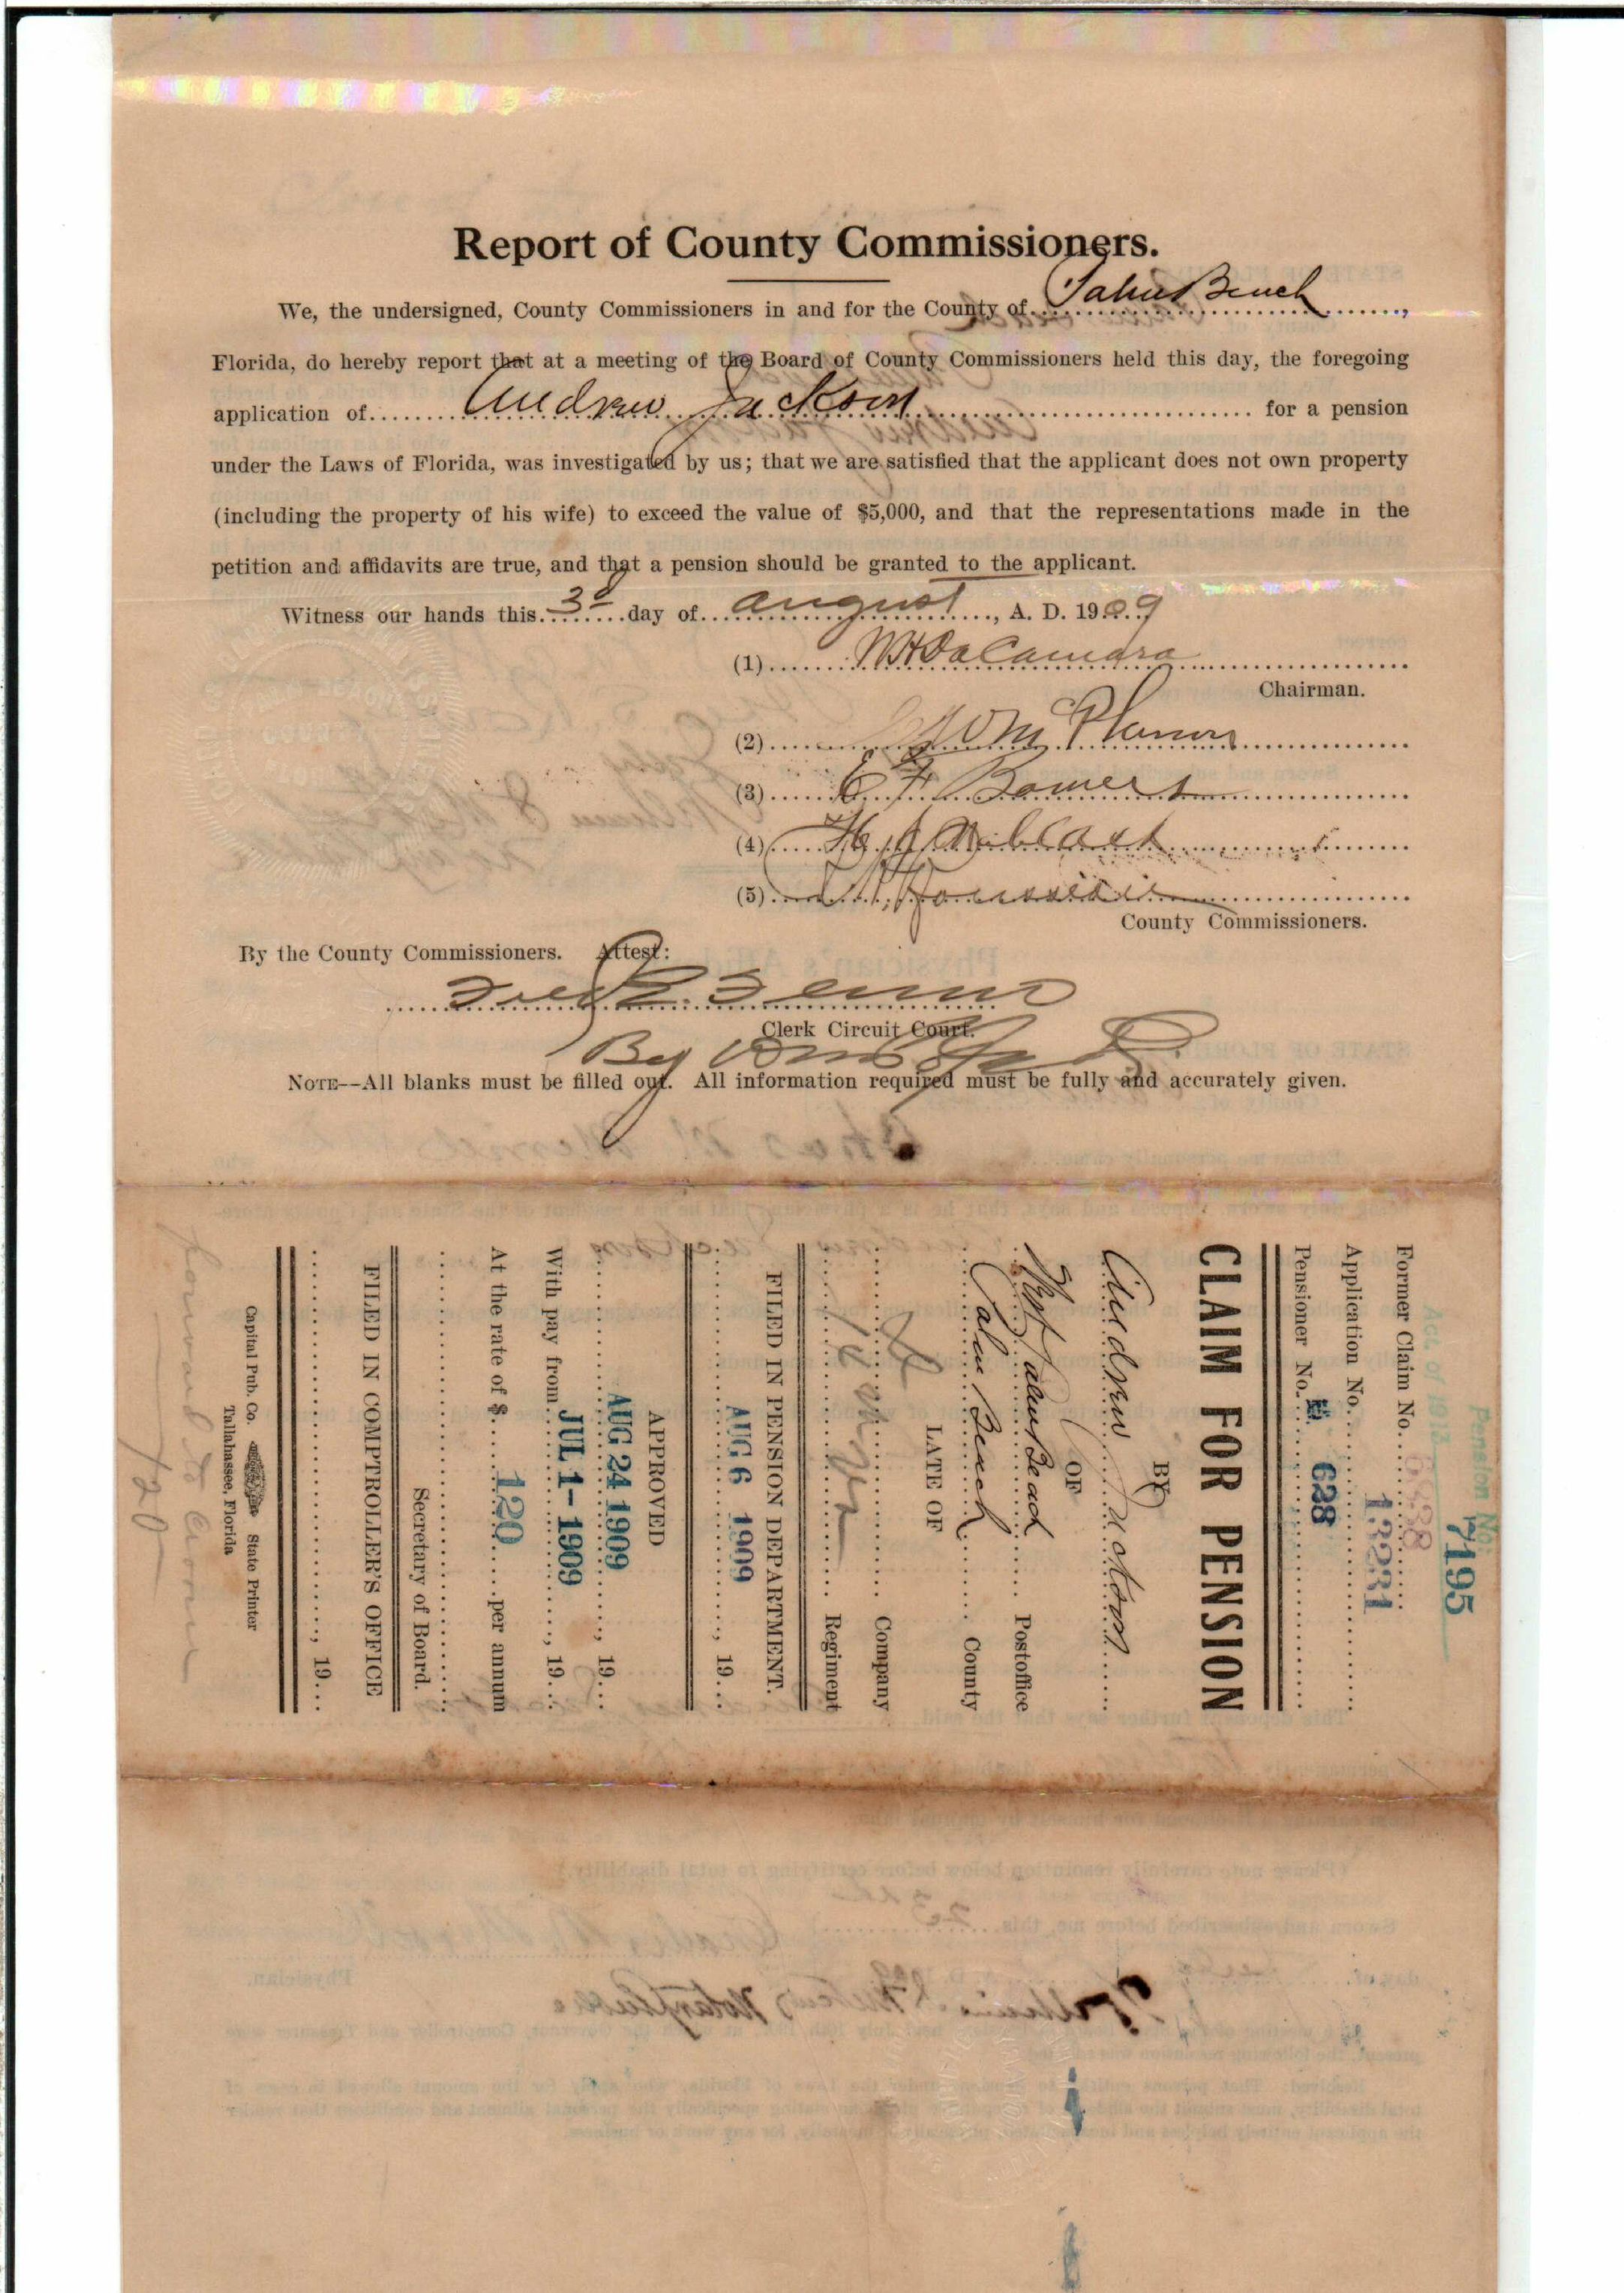 Report of County Commissioners.
We, the undersigned, County Commissioners in and for the County of Palm Beach,
Florida, do hereby report that at a meeting of the Board of County Commissioners held this day, the foregoing
application of Andrew Jackson for a pension
under the Laws of Florida, was investigated by us; that we are satisfied that the applicant does not own property
(including the property of his wife) to exceed the value of $5,000, and that the representations made in the
petition and affidavits are true, and that a pension should be granted to the applicant.
Witness our hands this 3d day of August, A. D. 1909
(1) W H DaCamara
Chairman.
(2)
(3) E F Bowers
(4)
(5)
County Commissioners.
By the County Commissioners. Attest:
Fred E. Fenno
Clerk Circuit Court.
By
NOTE--All blanks must be filled out. All information required must be fully and accurately given.
Pension No. 7195
Act of 1913
Former Claim No.
Application No. 13231
Pensioner No. E 628
CLAIM FOR PENSION
BY
Andrew Jackson
OF
West Palm Beach Postoffice
Palm Beach County
LATE OF
Company
Regiment
FILED IN PENSION DEPARTMENT.
AUG 6 1909, 19
APPROVED
AUG 24 1909, 19
With pay from JUL 1- 1909, 19
At the rate of $ 120 per annum
Secretary of Board.
FILED IN COMPTROLLER'S OFFICE
, 19
Capital Pub. Co. State Printer
Tallahassee, Florida
120